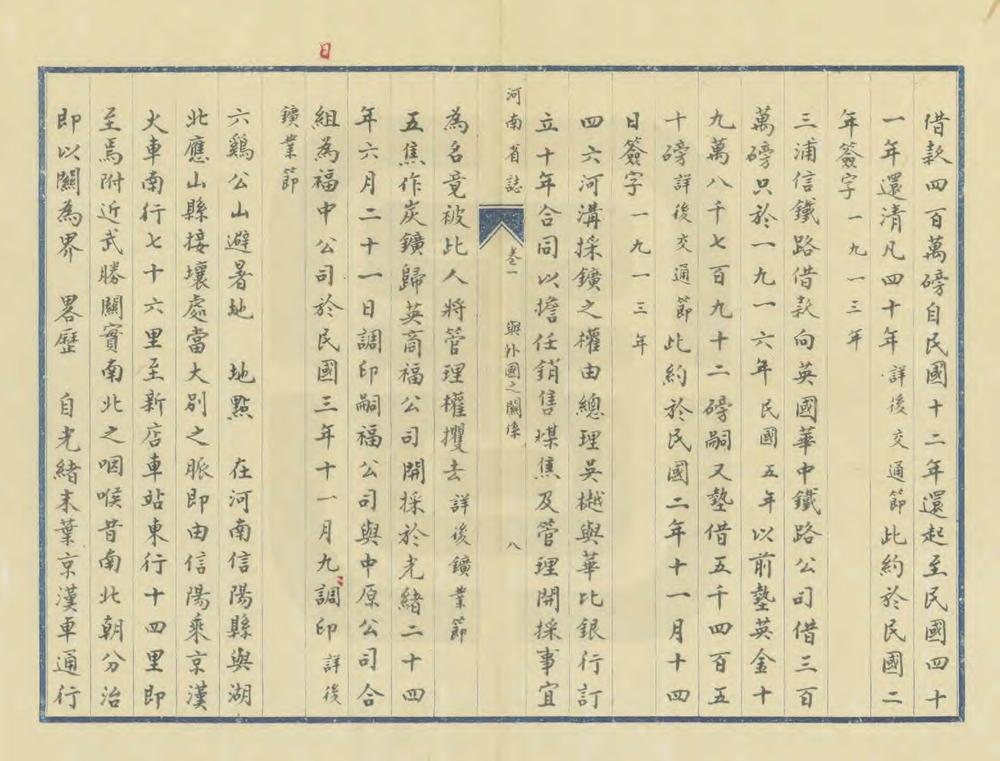 借款四百萬磅自民國十二年還起至民國四十
一年還清凡四十年詳後交通節此約於民國二
年簽字一九一三年
三浦信鐵路借款向英國華中鐵路公司借三百
萬磅只於一九一六年民國五年以前墊英金十
九萬八千七百九十二磅嗣又墊借五千四百五
十磅詳後交通節此約於民國二年十一月十四
日簽字一九一三年
四六河溝採鑛之權由總理吳樾與華比銀行訂
立十年合同以擔任銷售煤焦及管理開採事宜
河南省誌 卷一 與外國之關係 八
為名竟被比人將管理權攫去詳後鑛業節
五焦作炭鑛歸英商福公司開採於光緒二十四
年六月二十一日調印嗣福公司與中原公司合
組為福中公司於民國三年十一月九調印詳後
日
鑛業節
六鷄公山避暑地 地點 在河南信陽縣與湖
北應山縣接壤處當大別之脈即由信陽乘京漢
火車南行七十六里至新店車站東行十四里即
至焉附近武勝關實南北之咽喉昔南北朝分治
即以關為界 畧歷 自光緒末葉京漢車通行